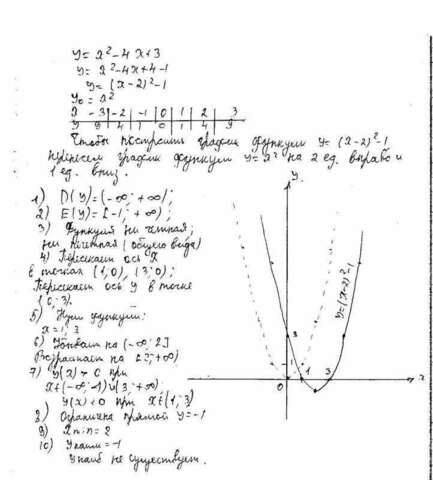 y = x² - 4x + 3
y = x² - 4x + 4 - 1
y = (x - 2)² - 1
y₀ = x²
x -3 -2 -1 0 1 2 3
y 9 4 1 0 1 4 9
Чтобы построить график функции y = (x-2)² - 1
перенесем график функции y = x² на 2 ед. вправо и
1 ед. вниз.
1) D(y) = (-∞; +∞);
2) E(y) = [-1; +∞);
3) Функция ни четная,
ни нечетная (общего вида)
4) Пересекает ось x
в точках (1; 0), (3; 0);
Пересекает ось y в точке
(0; 3).
5) Нули функции:
x = 1; 3
6) Убывает на (-∞; 2]
Возрастает на [2; +∞)
7) y(x) > 0 при
x ∈ (-∞; 1) ∪ (3; +∞)
y(x) < 0 при x ∈ (1; 3)
8) Ограничена прямой y = -1
9) x min = 2
10) y наим = -1
y наиб не существует.
y
3
1
0
1
3
x
y = (x-2)² - 1